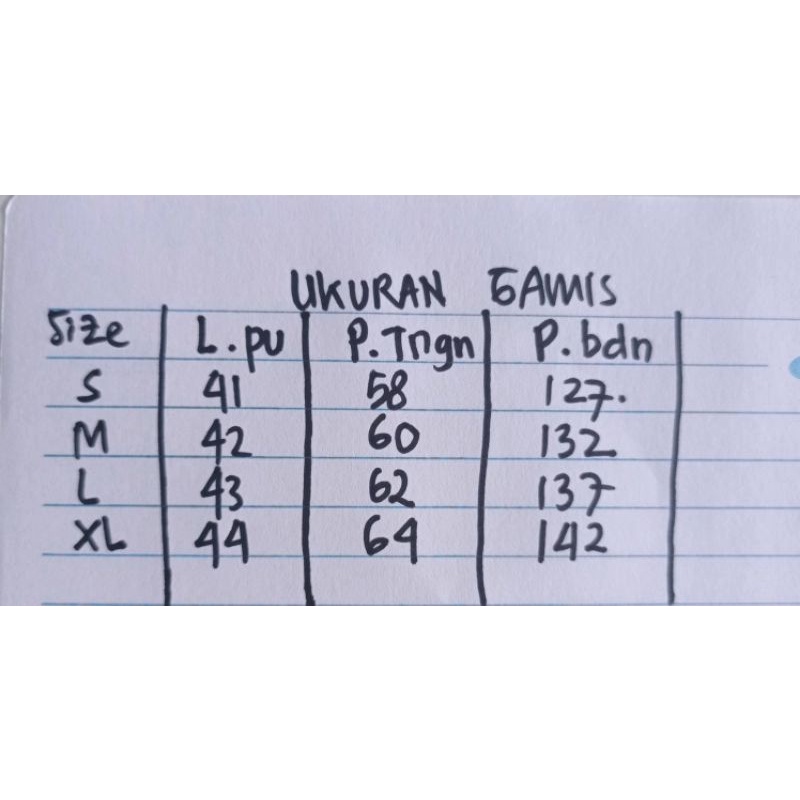 UKURAN GAMIS
Size L.pu P.Tngn P.bdn
S 41 58 127.
M 42 60 132
L 43 62 137
XL 44 64 142